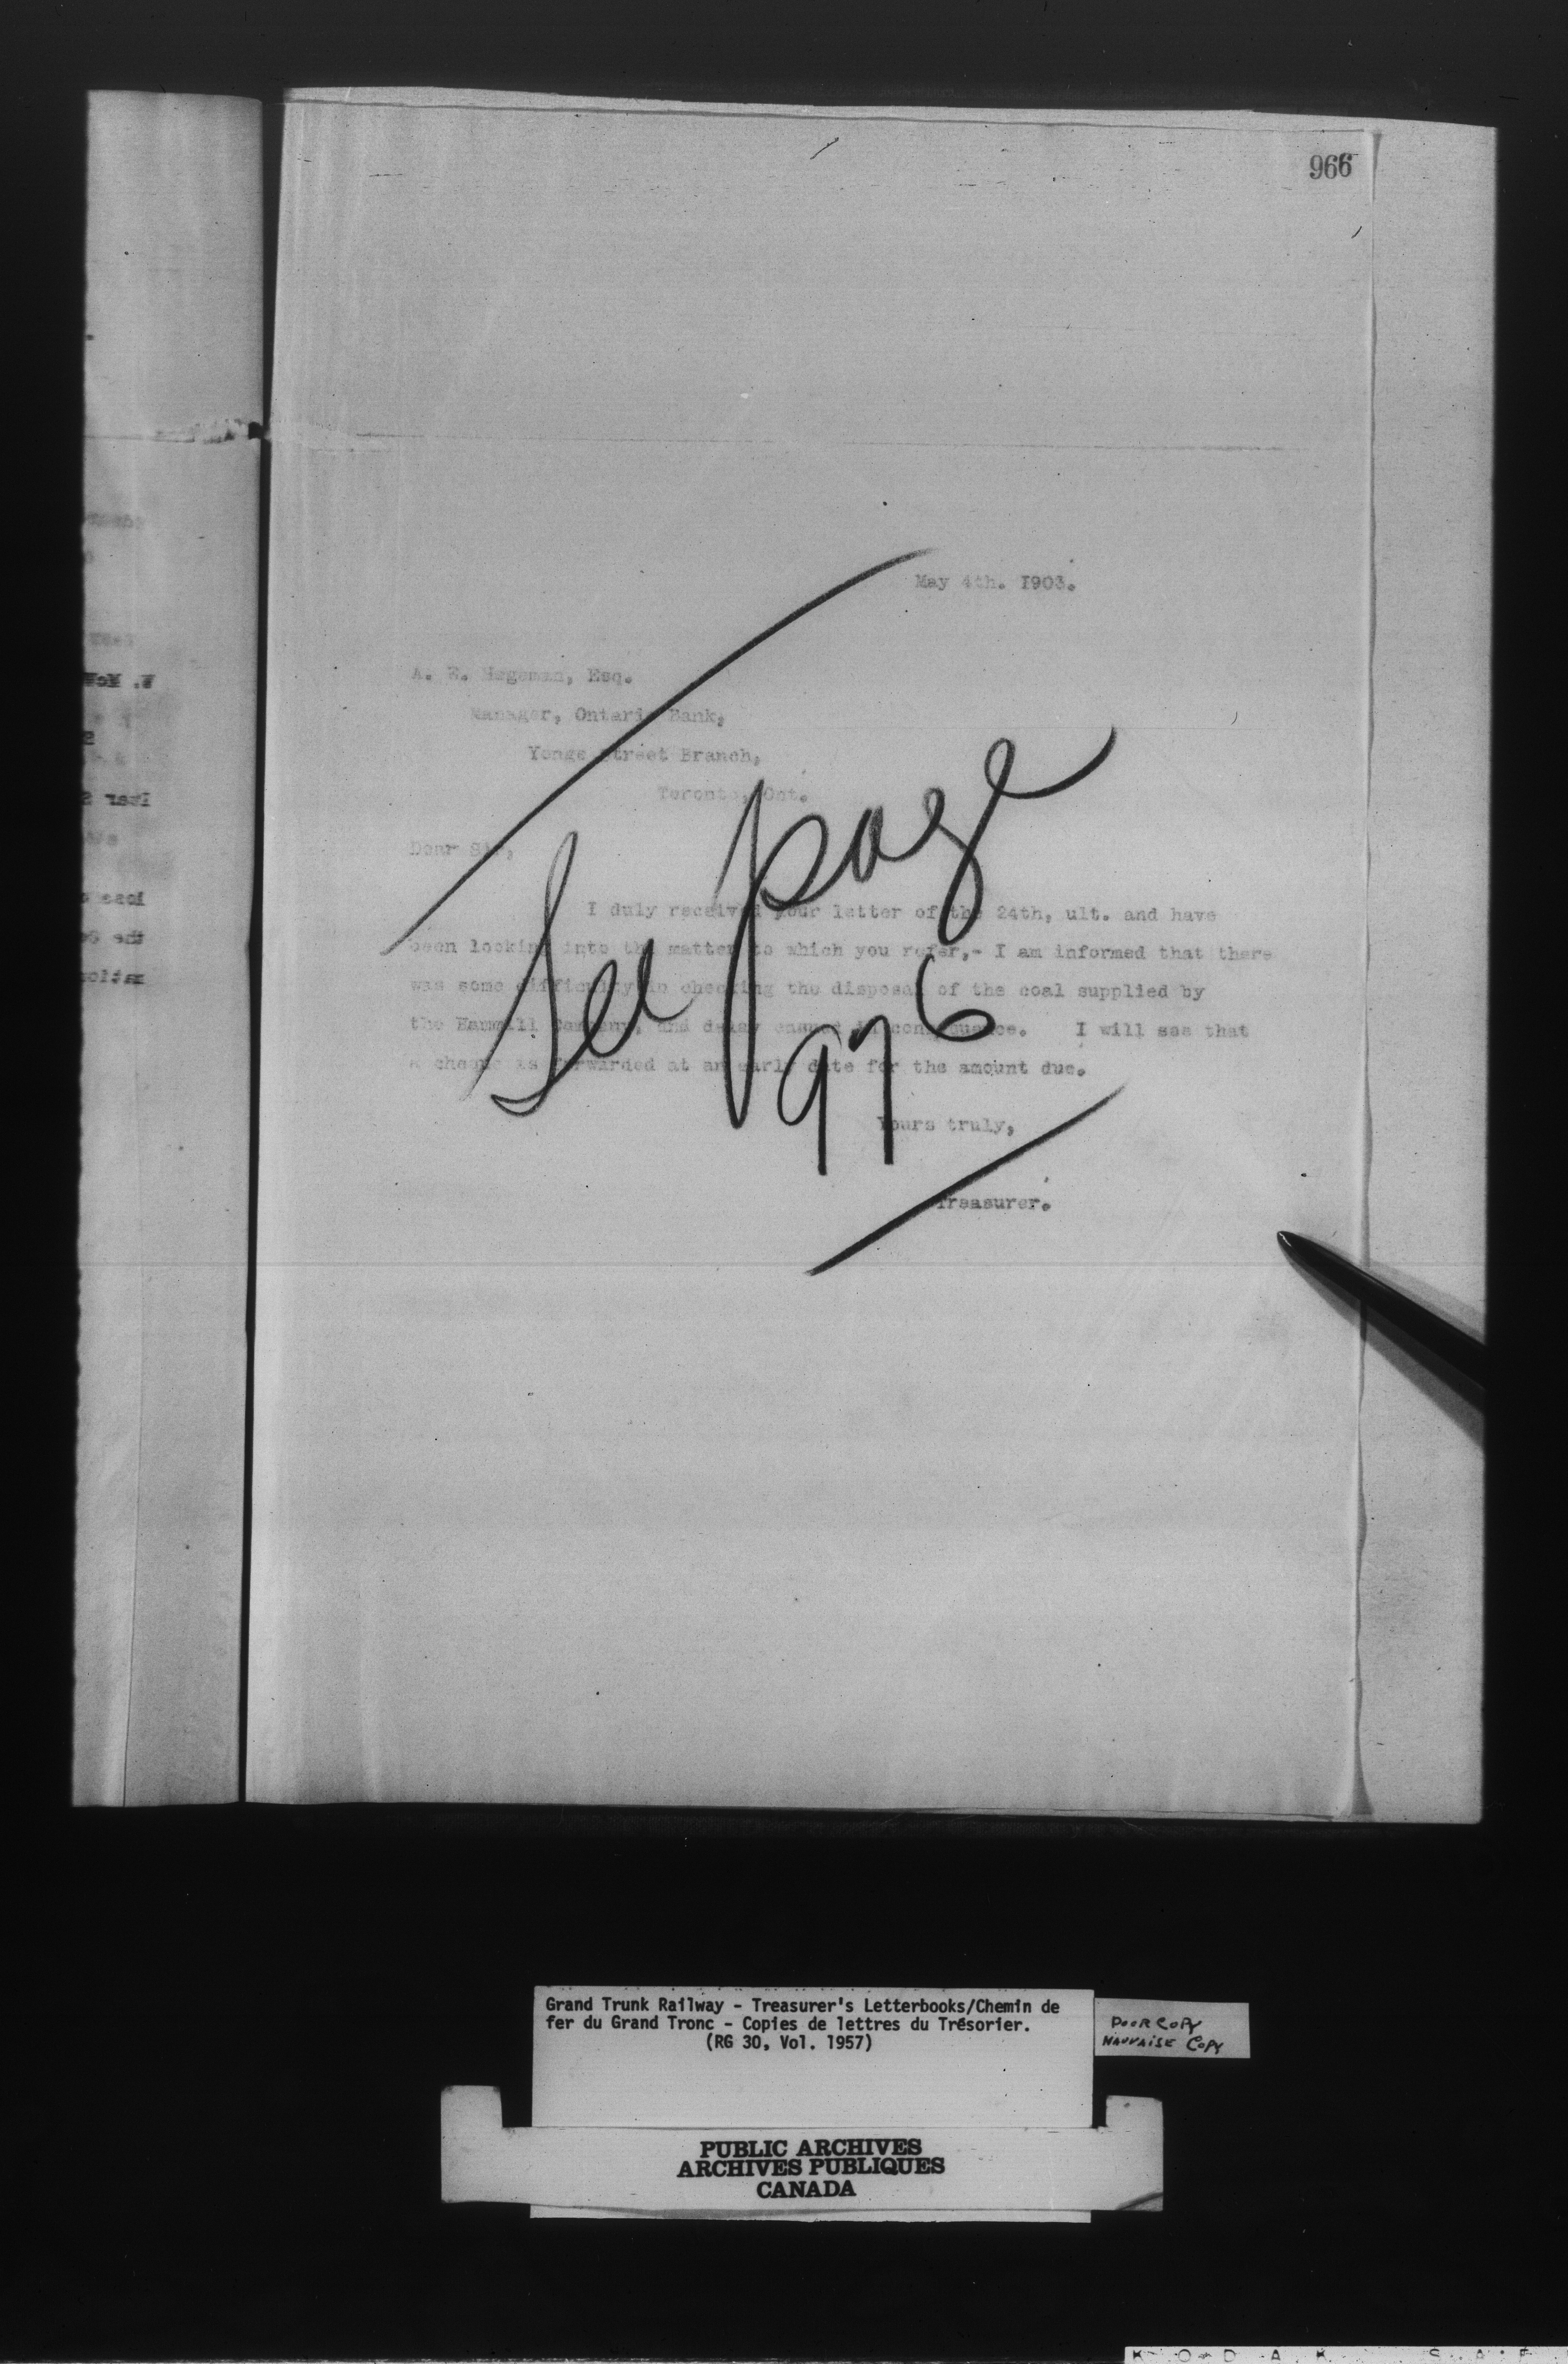 966
May 4th. 1903.
A. E. Hageman, Esq.
Manager, Ontario Bank,
Yonge Street Branch,
Toronto, Ont.
Dear Sir,
I duly received your letter of the 24th, ult. and have
been looking into the matter to which you refer,- I am informed that there
was some difficulty in checking the disposal of the coal supplied by
the Hammill Company, and delay ensued in consequence. I will see that
a cheque is forwarded at an early date for the amount due.
Yours truly,
Treasurer.
See page
976
Grand Trunk Railway - Treasurer's Letterbooks/Chemin de
fer du Grand Tronc - Copies de lettres du Trésorier.
(RG 30, Vol. 1957)
POOR COPY
MAUVAISE COPY
PUBLIC ARCHIVES
ARCHIVES PUBLIQUES
CANADA
K O D A K S A F